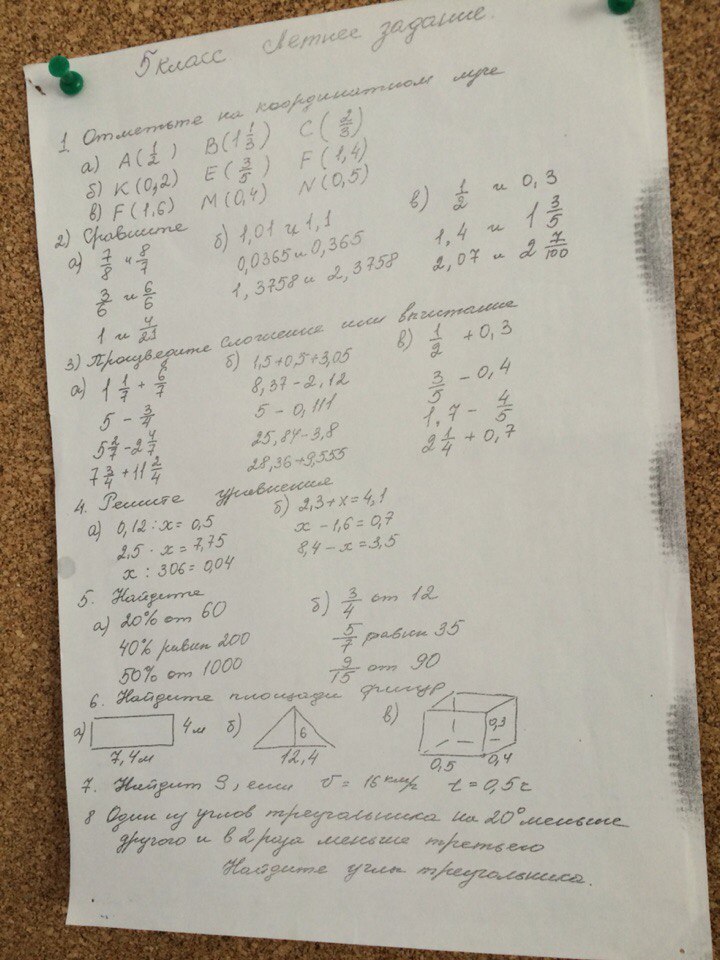 5 класс Летнее задание.
1. Отметьте на координатном луче
а) A(1/2) B(1 1/3) C(2/3)
б) K(0,2) E(3/5) F(1,4)
в) F(1,6) M(0,4) N(0,5)
2) Сравните
а) 7/8 и 8/7 б) 1,01 и 1,1 в) 1/2 и 0,3
3/6 и 6/6 0,0365 и 0,365 1,4 и 1 3/5
1 и 4/21 1,3758 и 2,3758 2,07 и 2 7/100
3) Произведите сложение или вычитание
а) 1 1/7 + 6/7 б) 1,5+0,5+3,05 в) 1/2 + 0,3
5 - 3/4 8,37-2,12 3/5 - 0,4
5 2/7 - 2 4/7 5 - 0,111 1,7 - 4/5
7 3/4 + 11 2/4 25,84-3,8 2 1/4 + 0,7
28,36+9,555
4. Решите уравнения
а) 0,12 : x = 0,5 б) 2,3+x=4,1
2,5 · x = 7,75 x - 1,6 = 0,7
x : 306 = 0,04 8,4 - x = 3,5
5. Найдите
а) 20% от 60 б) 3/4 от 12
40% равен 200 5/7 равен 35
50% от 1000 9/15 от 90
6. Найдите площади фигур
а) 4м б) 6 в) 0,3
7,4м 12,4 0,5 0,4
7. Найдит S, если v = 16 км/ч t = 0,5 ч
8 Один из углов треугольника на 20° меньше
другого и в 2 раза меньше третьего
Найдите углы треугольника.